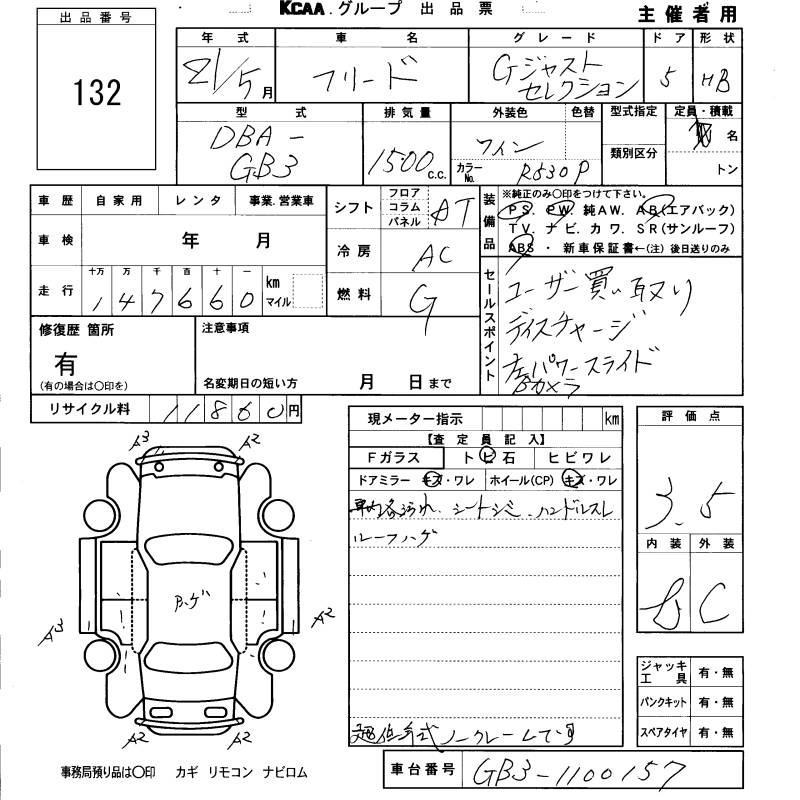 KCAA.グループ 出品票
主催者用
出品番号
132
年式 車名 グレード ドア 形状
21/5月 フリード Gジャスト セレクション 5 HB
型式 排気量 外装色 色替 型式指定 定員・積載
DBA-GB3 1500c.c. ワイン カラーNo. R530P 類別区分 名 トン
車歴 自家用 レンタ 事業.営業車
シフト フロア コラム パネル AT
装備品 ※純正のみ〇印をつけて下さい。
PS. PW. 純AW. AB(エアバック)
TV. ナビ. カワ. SR(サンルーフ)
ABS・ 新車保証書←(注) 後日送りのみ
車検 年 月
冷房 AC
走行 十万 万 千 百 十 一 km マイル
147660
燃料 G
セールスポイント
ユーザー買い取り
ディスチャージ
左パワースライド
Bカメラ
修復歴 箇所
有
(有の場合は〇印を)
注意事項
名変期日の短い方 月 日まで
リサイクル料 11860円
現メーター指示 km
【査定員記入】
Fガラス トビ石 ヒビワレ
ドアミラー キズ・ワレ ホイール(CP) キズ・ワレ
車内各汚れ、シートシミ、ハンドルスレ
ルーフハゲ
評価点
3.5
内装 外装
C
A3 A2
ハゲ
A3 A2
A2 A2
ジャッキ工具 有・無
パンクキット 有・無
スペアタイヤ 有・無
超低年式ノークレームです
事務局預り品は〇印 カギ リモコン ナビロム
車台番号 GB3-1100157